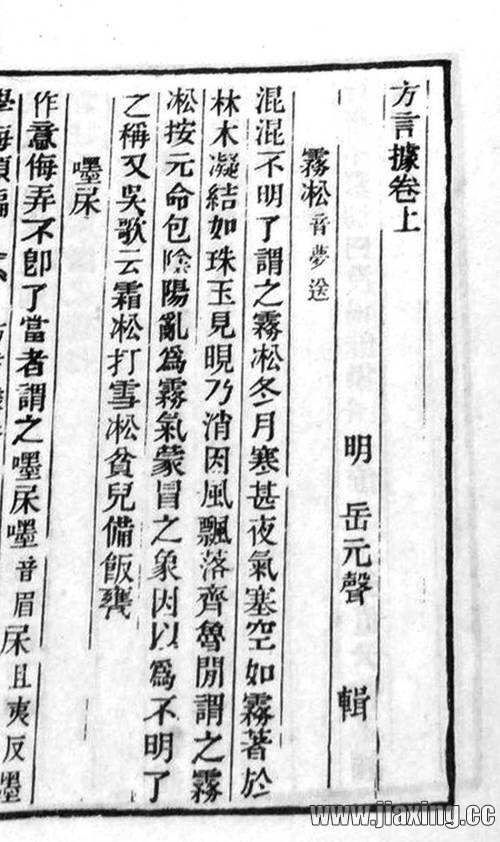 方言據卷上
明 岳元聲 輯
霧凇音夢送
混混不明了謂之霧凇冬月寒甚夜氣塞空如霧著於
林木凝結如珠玉見晛乃消因風飄落齊魯閒謂之霧
凇按元命包陰陽亂爲霧氣蒙冒之象因以爲不明了
之稱又吳歌云霜凇打雪凇貧兒備飯甕
嚜㞎
作意侮弄不卽了當者謂之嚜㞎嚜音眉㞎且夷反墨
學海類編
www.jiaxing.cc